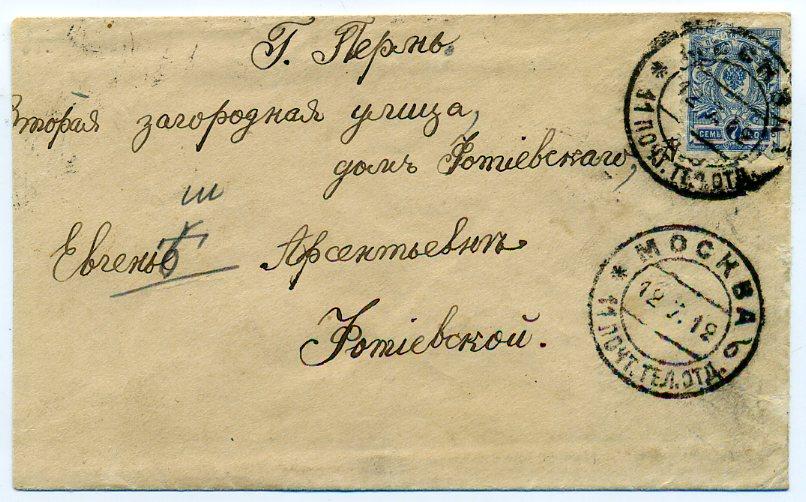 Г. Пермь.
Вторая загородная улица,
домъ Фотіевскаго,
Ш
6
Евгеньѣ Арсентьевнѣ
Фотіевской.
МОСКВА
* 11 ПОЧТ. ТЕЛ. ОТД.
СЕМЬ 7 КОП
* МОСКВА *
12.7.12
11 ПОЧТ. ТЕЛ. ОТД.